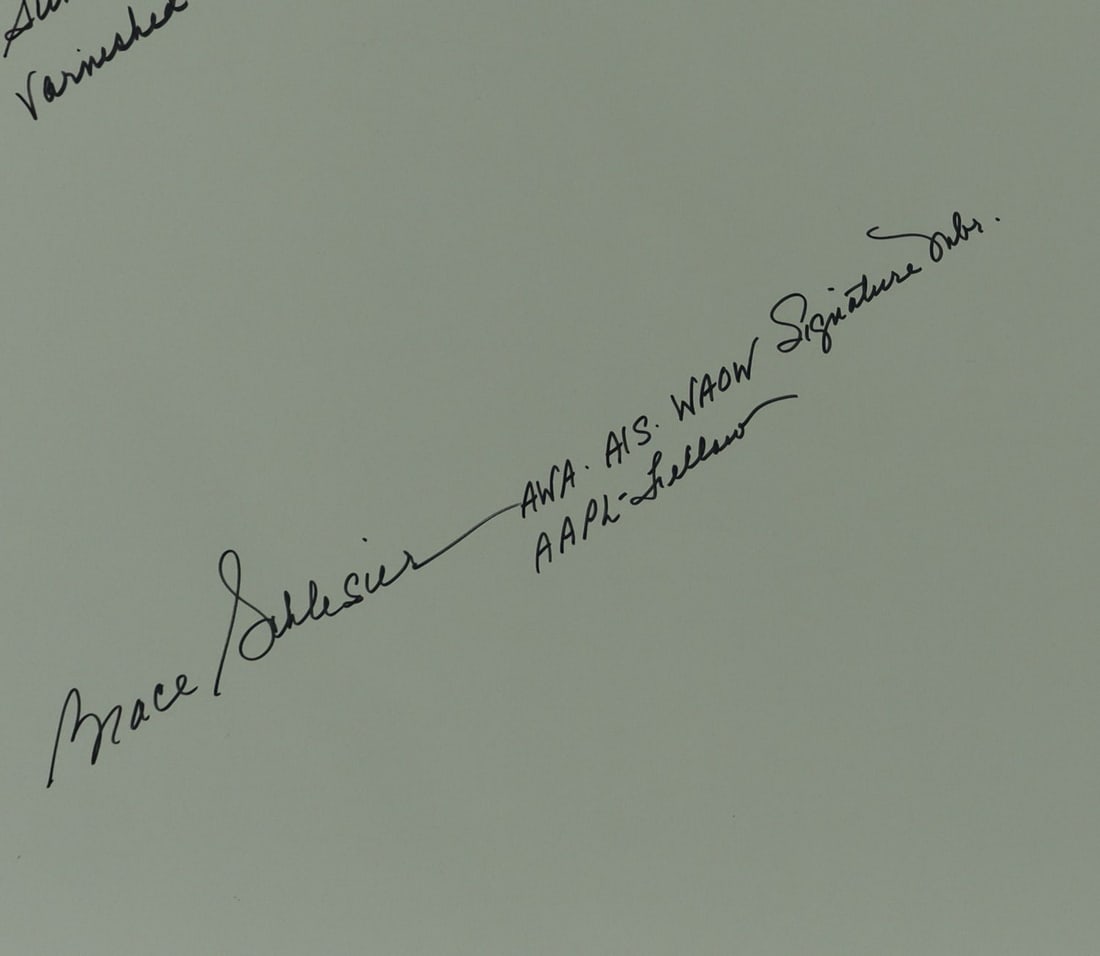 Varnished
Grace Schlesier — AWA. AIS. WAOW Signature Mbr.
AAPL-Fellow